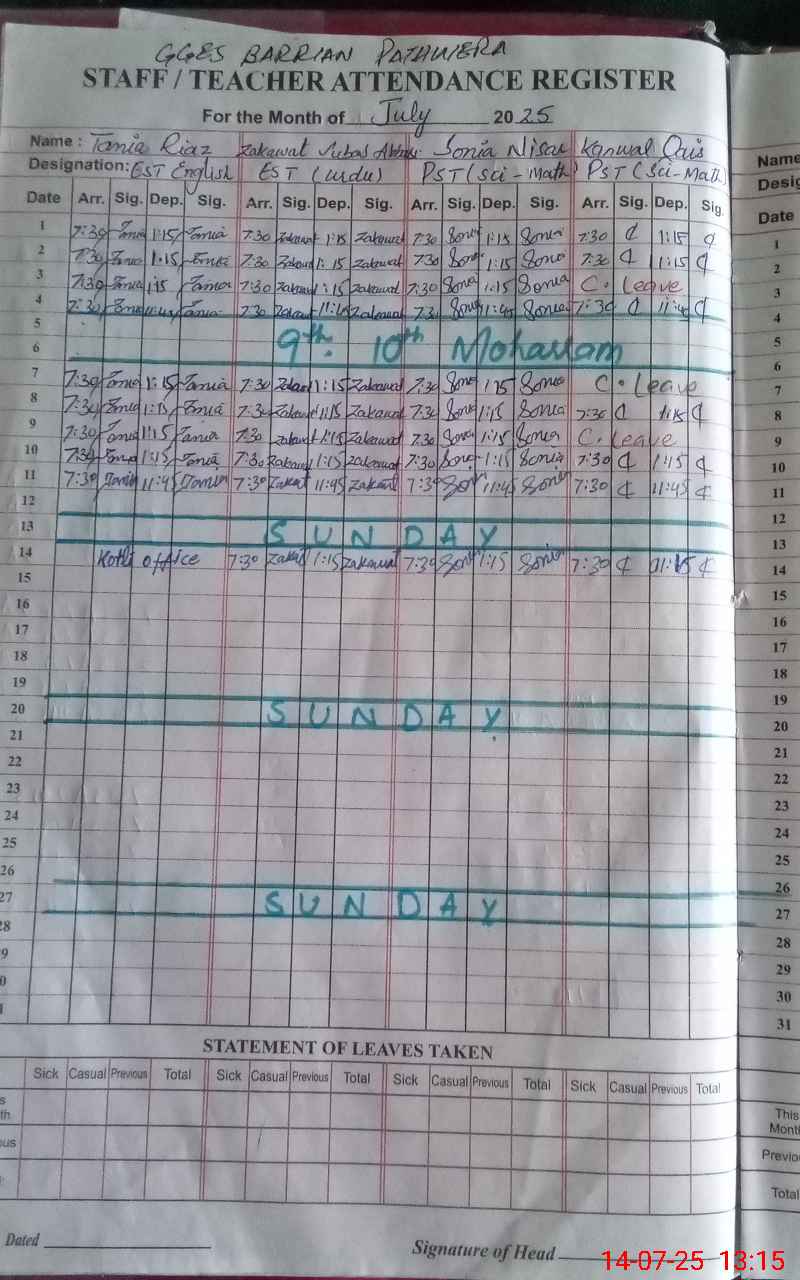 GGES BARRIAN PATHWERA
STAFF / TEACHER ATTENDANCE REGISTER
For the Month of July 2025
Name : Tania Riaz Zakawat Abbas Sonia Nisar Kanwal Qais
Designation: EST English EST (Urdu) PST (Sci-Math) PST (Sci-Math)
Date Arr. Sig. Dep. Sig. Arr. Sig. Dep. Sig. Arr. Sig. Dep. Sig. Arr. Sig. Dep. Sig.
1 7:30 Tania 1:15 Tania 7:30 Zakawat 1:15 Zakawat 7:30 Sonia 1:15 Sonia 7:30 ₵ 1:15 ₵
2 7:30 Tania 1:15 Tania 7:30 Zakawat 1:15 Zakawat 7:30 Sonia 1:15 Sonia 7:30 ₵ 1:15 ₵
3 7:30 Tania 1:15 Tania 7:30 Zakawat 1:15 Zakawat 7:30 Sonia 1:15 Sonia C. Leave
4 7:30 Tania 11:45 Tania 7:30 Zakawat 11:45 Zakawat 7:30 Sonia 11:45 Sonia 7:30 ₵ 11:45 ₵
5
6 9th. 10th Moharram
7 7:30 Tania 1:15 Tania 7:30 Zakawat 1:15 Zakawat 7:30 Sonia 1:15 Sonia C. Leave
8 7:30 Tania 1:15 Tania 7:30 Zakawat 1:15 Zakawat 7:30 Sonia 1:15 Sonia 7:30 ₵ 1:15 ₵
9 7:30 Tania 1:15 Tania 7:30 Zakawat 1:15 Zakawat 7:30 Sonia 1:15 Sonia C. Leave
10 7:30 Tania 1:15 Tania 7:30 Zakawat 1:15 Zakawat 7:30 Sonia 1:15 Sonia 7:30 ₵ 1:15 ₵
11 7:30 Tania 11:45 Tania 7:30 Zakawat 11:45 Zakawat 7:30 Sonia 11:45 Sonia 7:30 ₵ 11:45 ₵
12
13 SUNDAY
14 Kotli office 7:30 Zakawat 1:15 Zakawat 7:30 Sonia 1:15 Sonia 7:30 ₵ 1:15 ₵
15
16
17
18
19
20 SUNDAY
21
22
23
24
25
26
27 SUNDAY
28
9
0
1
STATEMENT OF LEAVES TAKEN
Sick Casual Previous Total Sick Casual Previous Total Sick Casual Previous Total Sick Casual Previous Total
s
th
ous
Dated
Signature of Head
Name
Desig
Date
1
2
3
4
5
6
7
8
9
10
11
12
13
14
15
16
17
18
19
20
21
22
23
24
25
26
27
28
29
30
31
This
Mont
Previo
Total
14-07-25 13:15